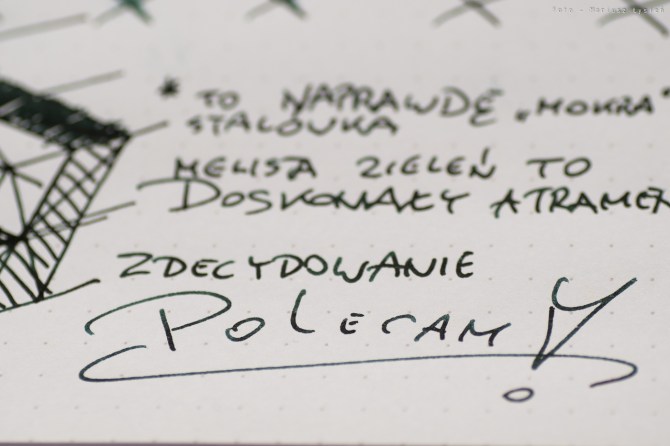 * TO NAPRAWDĘ „MOKRA"
STALÓWKA
MELISA ZIELEŃ TO
DOSKONAŁY ATRAMEN
ZDECYDOWANIE
POLECAM!